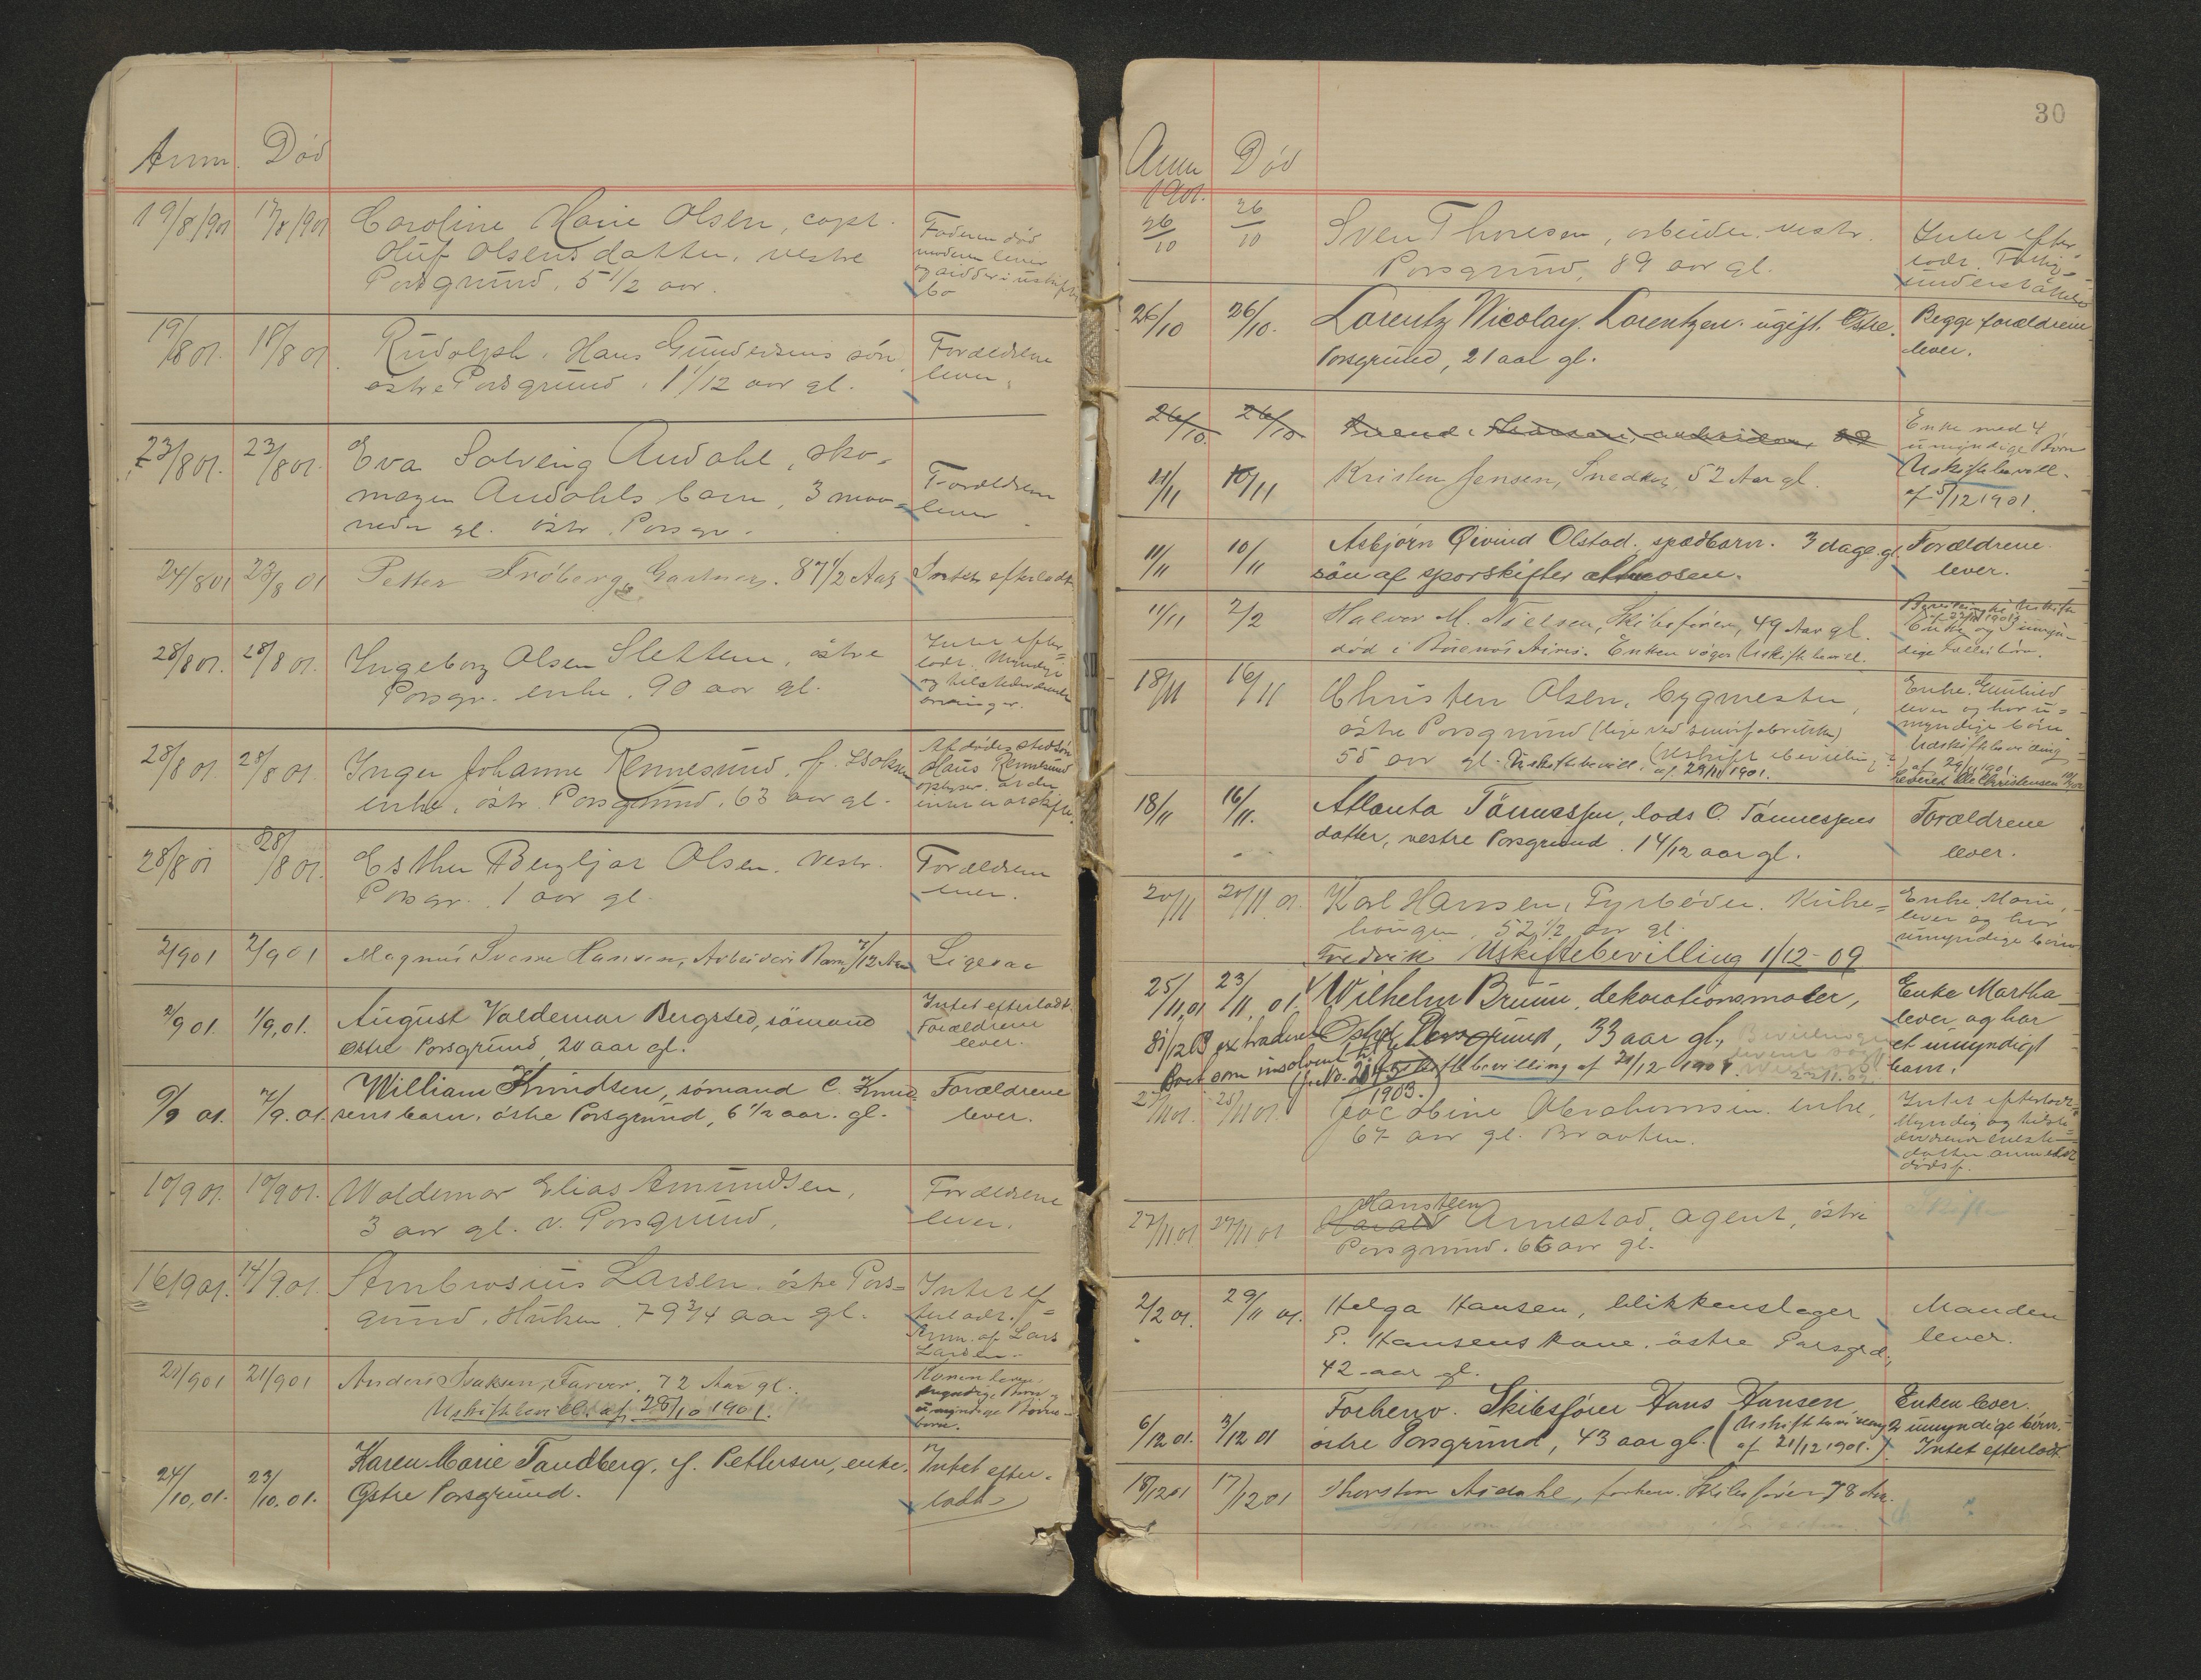 Anm. Død
19/8/901 17/8/901 Caroline Marie Olsen, capt.
Oluf Olsens datter, vestre
Porsgrund, 5 1/2 aar.
Faderen død
moderen lever
og sidder i uskiftet
bo
19/8 01. 18/8 01. Rudolph, Hans Gundersens søn,
østre Porsgrund, 1 1/12 aar gl.
Forældrene
lever.
23/8 01. 23/8 01. Eva Solveig Audahl, sko-
mager Audahls barn, 3 maa-
neder gl. østr. Porsgr.
Forældrene
lever
24/8 01 23/8 01 Petter Fröberg, Gartner. 87 1/2 Aar
Intet efterladt
28/8 01. 28/8 01. Ingeborg Olsen Sletten, østre
Porsgr. enke, 90 aar gl.
Intet efter-
ladt. Myndige
og tilstedeværende
arvinger.
28/8 01. 28/8 01. Inger Johanne Rennesund, f. Isaksen
enke, østr. Porsgrund, 63 aar gl.
Afdødes stedsøn
Hans Rennesund
opløser. at der
intet er at skifte.
28/8 01 28/8 01. Esther Bergljot Olsen. Vestr.
Porsgr. 1 aar gl.
Forældrene
lever.
2/9 01 2/9 01 Magnus Sverre Hansen, Arbeiders Barn 7/12 Aar
Ligesaa
2/9 01 1/9, 01. August Valdemar Bergsted, sømand
østre Porsgrund, 20 aar gl.
Intet efterladt
Forældrene
lever.
9/9 01. 7/9. 01. William Knudsen, sömand C. Knud-
sens barn, østre Porsgrund, 6 1/2 aar. gl.
Forældrene
lever.
10/9 01. 10/9 01. Waldemar Elias Amundsen,
3 aar gl. v. Porsgrund,
Forældrene
lever.
16/9 01. 14/9. 01 Ambrosius Larsen, østre Pors-
grund, 79 3/4 aar gl.
Intet ef-
terladt.
Anm. af Lars
Larsen.
21/9 01 21/9 01 Anders Isaksen, Farver, 72 Aar gl.
Uskiftebevill. af 28/10 1901.
Konen lever,
myndige Børn og
umyndige Børne-
børn.
24/10, 01. 23/10. 01. Karen Marie Tandberg, f. Pettersen, enke.
Østre Porsgrund.
Intet efter-
ladt
30
Anm Død
1901.
26/10 26/10 Sven Thoresen, arbeider, vestr.
Porsgrund, 89 aar gl.
Intet efter-
ladt. Fattig-
understøttelse
26/10 26/10. Lorentz Nicolay Lorentzen. ugift. Østre.
Porsgrund, 21 aar gl.
Begge forældrene
lever.
26/10. 26/10
11/11 10/11 Kristen Jensen, Snedker, 52 Aar gl.
Enke med 4
umyndige Børn
Uskiftebevill.
af 5/12 1901.
11/11 10/11 Asbjørn Øivind Olstad. spædbarn. 3 dage gl.
søn af sporskifter
Forældrene
lever.
11/11 2/2 Halvor M. Nielsen, Skibsfører, 49 Aar gl.
død i Buenos Aires. Enken søger Uskiftebevill.
Enke og umyn-
dige Fællesbørn.
18/11 16/11 Christen Olsen, bygmester,
østre Porsgrund (lige ved
55 aar gl. Uskiftebevill. af 29/11 1901.
Enke, Gunhild
lever og har u-
myndige børn.
Uskiftebevilling
af 29/11 1901
18/11 16/11. Atlanta Tönnessen, lods O. Tönnessens
datter, vestre Porsgrund. 14/12 aar gl.
Forældrene
lever.
20/11 20/11 01. Karl Hansen, Fyrbøder. Kirke-
haugen, 52 1/2 aar gl.
Uskiftebevilling 1/12-09
Enke, Marie,
lever og har
umyndige børn
25/11, 01 23/11, 01. Fredrik Wilhelm Bruun, dekorationsmaler,
Østre Porsgrund, 33 aar gl.,
31/12 03 extraderet
Boet som insolvent
(j.No. 2045/1903.) Uskiftebevilling af 21/12 1901.
Enke Martha
lever og har
et umyndigt
barn.
27/11 01. 25/11 01. Jacobine Abrahamsen. enke,
67 aar gl.
Intet efterladt.
Myndig og tilste-
deværende eneste
datter anmeldt
dødsf.
27/11 01 27/11 01 Hansteen Arnestad, agent, østre
Porsgrund. 66 aar gl.
Skifte
2/12 01. 29/11 01. Helga Hansen, blikkenslager
P. Hansens kone, østre Porsgrd.,
42 aar gl.
Manden
lever.
6/12 01. 3/12 01 Forhenv. Skibsfører Hans Hansen,
østre Porsgrund, 43 aar gl. (Uskiftebevilling
af 21/12 1901.)
Enken lever.
2 umyndige børn.
Intet efterladt
18/12 01 17/12 01 Thorsten Asdahl, forhenv. Skibsfører 78 Aar.